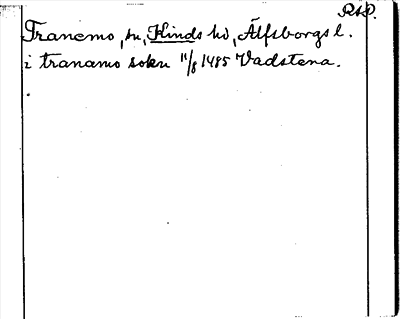 RAP.
Tranemo, sn, Kinds hd, Älfsborgs l.
i tranamo sokn 11/8 1485 Vadstena.